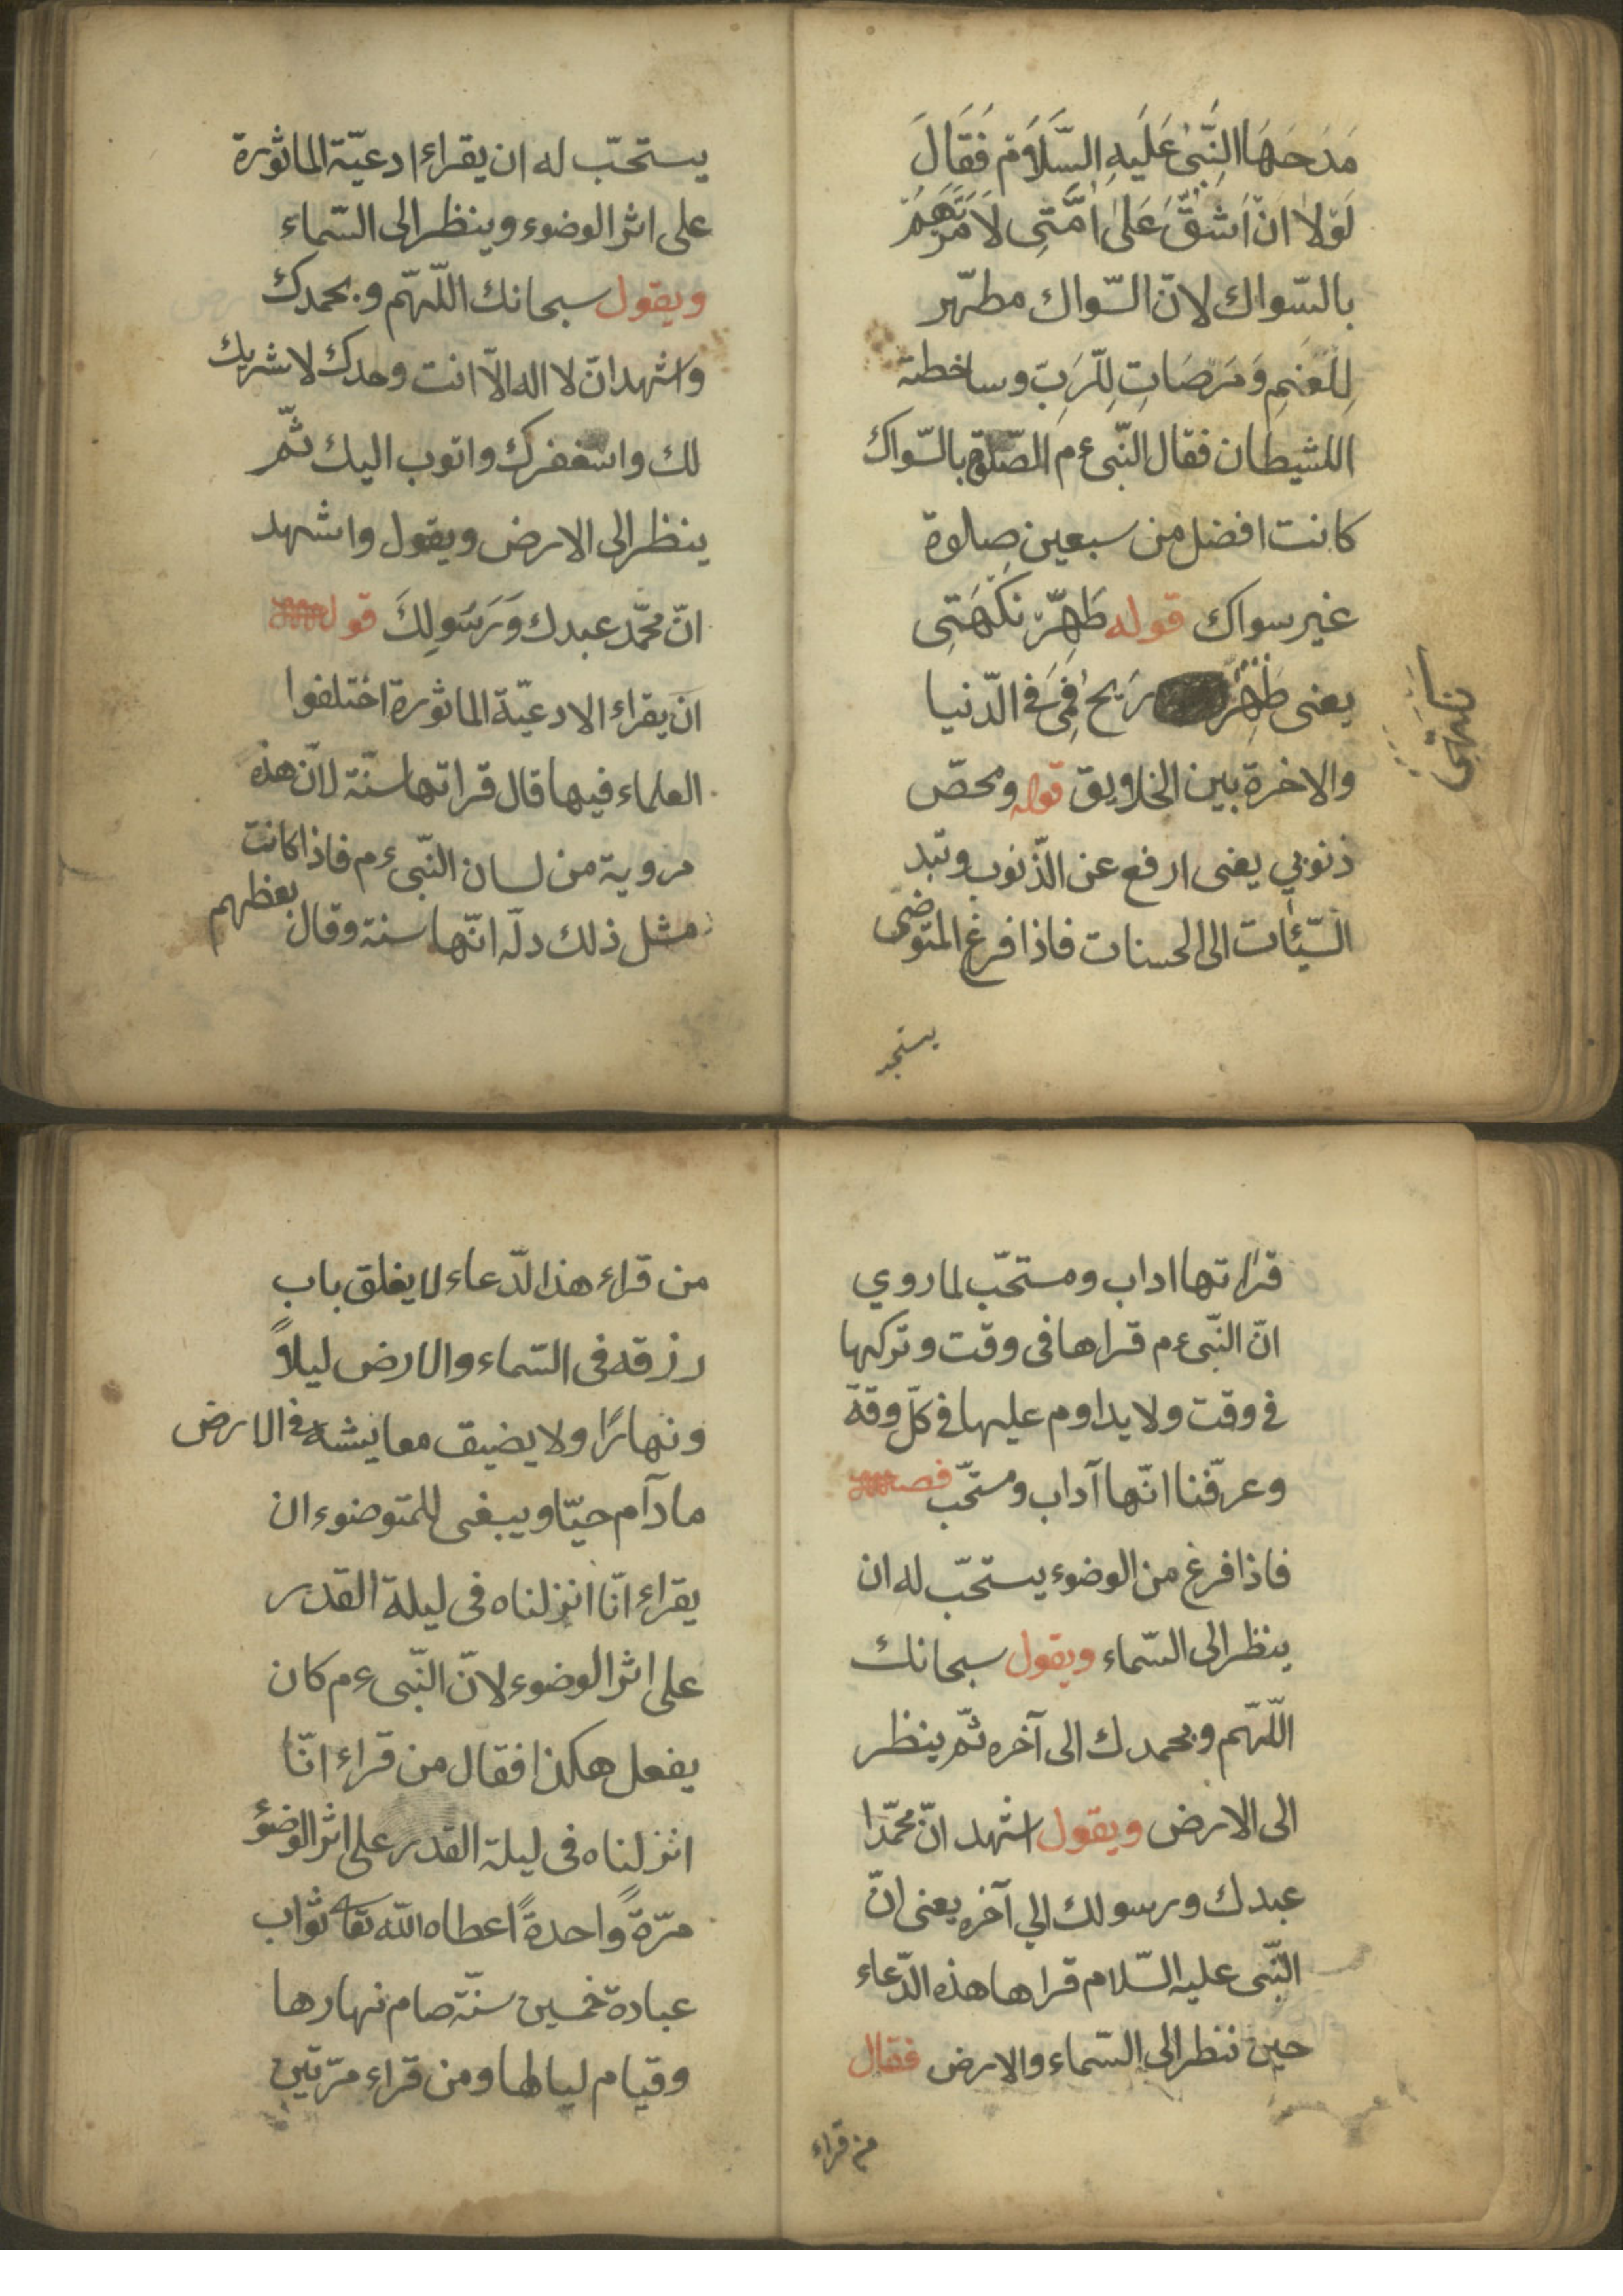 مَدَحَهَا النَّبِىُّ عَلَيهِ السَّلَامْ فَقَالَ
لَوْلَا انْ اَشُقَّ عَلَى اُمَّتِى لَاَمَرْتَهُمْ
بالسّواك لانّ السّواك مطهّر
لِلْفَمِ وَمَرضَاتِ لِلّرَبِّ وساخطة
اللشيطان فقال النّبى ءم الصّلوة بالسّواك
كانت افضل من سبعين صلوة
غير سواك قوله طَهِّرْ نَكْهَتِى
يعنى طَهِّرْ رَيحَ فَمِى فى الدّنيا
والاخرة بين الخلايق قوله ومحصّ
ذنوبي يعنى ارفع عن الذّنوب وتبد
السّيّئات الى الحسنات فاذا فرغ المتوضى
نكهتى
يستحب
يستحبّ له ان يقراء ادعيّة الماثورة
على اثر الوضوء وينظر الى السّماء
ويقول سبحانك اللّهمّ وبحمدك
واشهد انّ لا اله الّا انت وحدك لا شريك
لك واستغفرك واتوب اليك ثمّ
ينظر الى الارض ويقول واشهد
انّ محمّد عبدك وَرَسُولِكَ قوله
ان يقراء الادعيّة الماثورة اختلفوا
العلماء فيها قال قراتها سنّة لانّ هذه
مروية من لسان النّبى ءم فاذا كانت
مثل ذلك دلّ انّها سنة وقال بعظهم
قراتها اداب ومستحّب لما روي
انّ النّبى ءم قراها فى وقت وتركها
فى وقت ولا يداوم عليها فى كلّ وقة
وعرّفنا انّها آداب ومستحّب فصل
فاذا فرغ من الوضوء يستحّب له ان
ينظر الى السّماء ويقول سبحانك
اللّهمّ وبحمدك الى آخره ثمّ ينظر
الى الارض ويقول اشهد انّ محمّدا
عبدك ورسولك الي آخره يعنى انّ
النّبى عليه السّلام قراها هذه الدّعاء
حين ننظر الى السّماء والارض فقال
من قراء
من قراء هذا الدّعاء لا يغلق باب
رزقه فى السّماء والارض ليلاً
ونهارًا ولا يضيق معايشه فى الارض
مادآم حيّا ويبغى للمتوضوء ان
يقراء انّا انزلناه فى ليلة القدر
على اثر الوضوء لانّ النّبى ءم كان
يفعل هكذا فقال من قراء انّا
انزلناه فى ليلة القدر على اثر الوضؤ
مرّةً واحدةً اعطاه اللّه تعا ثواب
عبادة خمسين سنّة صام نهارها
وقيام ليالها ومن قراء مرّتين